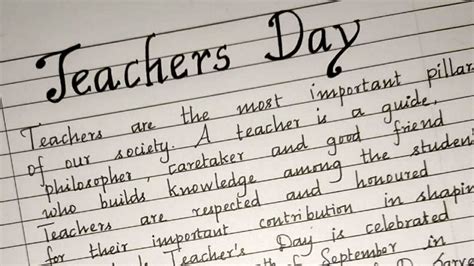 Teachers Day
Teachers are the most important pillar
of our society. A teacher is a guide,
philosopher, caretaker and good friend
who builds knowledge among the student
Teachers are respected and honoured
for their important contribution in shapin
Teacher's Day is celebrated
of September in